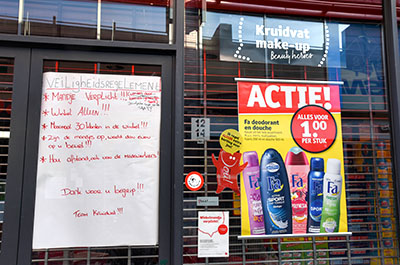 VEILIGHEIDSREGELEMENT
* Mandje Verplicht!!!
* Winkel Alleen!!!
* Maximaal 30 klanten in de winkel!!!
* Zijn de mandjes op wacht dan even
op u beurt!!!
* Hou afstand, ook van de medewerkers
Dank voor u begrip!!!
Team Kruidvat!!!
Kruidvat
make-up
Beauty heroes
ACTIE!
Fa deodorant en
douche
ALLES VOOR
1.00
PER STUK
12
14
Fa
Fa
Fa
Fa
Fa
SPORT